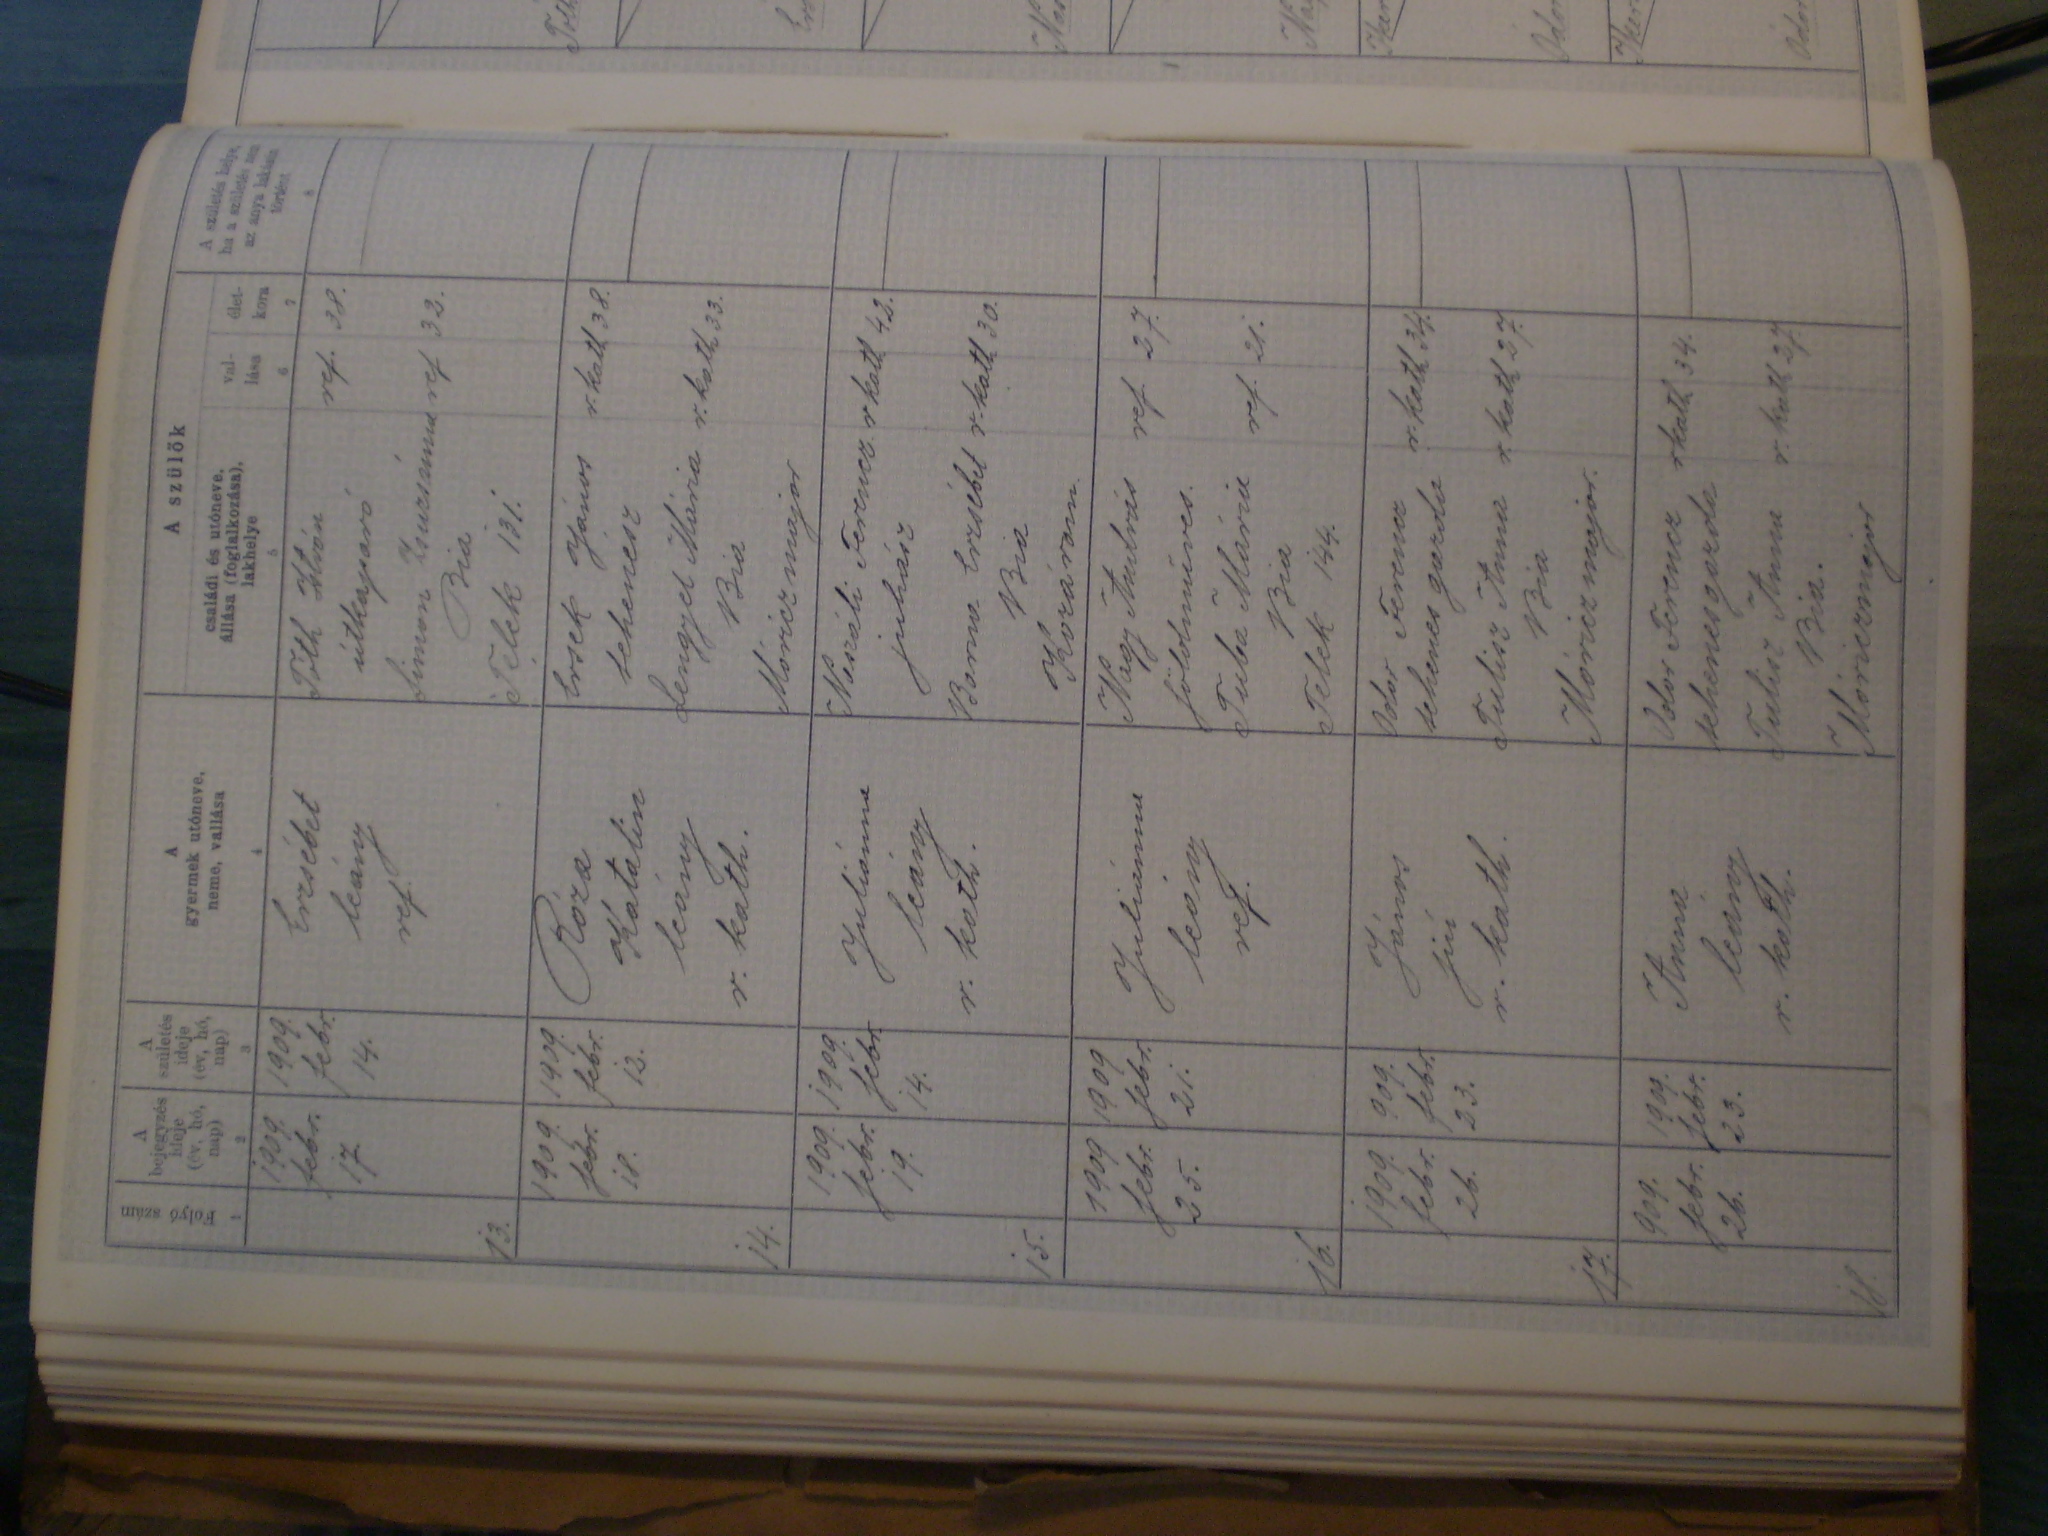 Folyó szám
A bejegyzés ideje (év, hó, nap)
A születés ideje (év, hó, nap)
A gyermek utóneve, neme, vallása
A szülők
családi és utóneve, állása (foglalkozása), lakhelye
val-
lása
élet-
kora
A születés helye,
ha a születés nem
az anya lakásán
történt
1
2
3
4
5
6
7
8
13.
1909.
febr.
17.
1909.
febr.
14.
Erzsébet
leány
ref.
Tóth István
útkaparó
ref. 38.
Simon Zsuzsánna ref 32.
Bia
Telek 131.
14.
1909
febr.
18.
1909.
febr.
12.
Róza
Katalin
leány
r. kath.
Ersek János r. kath 38.
tehenesz
Lengyel Mária r. kath 33.
Bia
Móriczmajor
15.
1909.
febr.
19.
1909.
febr.
14.
Juliánna
leány
r. kath.
Ferencz r kath 42.
juhász
Barna Erzsébet r. kath 30.
Bia
16.
1909
febr.
25.
1909
febr.
21.
Juliánna
leány
ref.
Nagy András ref 27.
földmüves.
Tuba Mária ref. 21.
Bia
Telek 144.
17.
1909.
febr.
26.
909.
febr.
23.
János
fiú
r. kath.
Odor Ferencz r. kath 34.
tehenesgazda
Tulisz Anna r kath 27.
Bia
Móriczmajor.
18.
909.
febr.
26.
1909.
febr.
23.
Anna
leány
r. kath.
Odor Ferencz r kath 34.
tehenesgazda
Tulisz Anna r. kath 27.
Bia.
Móriczmajor